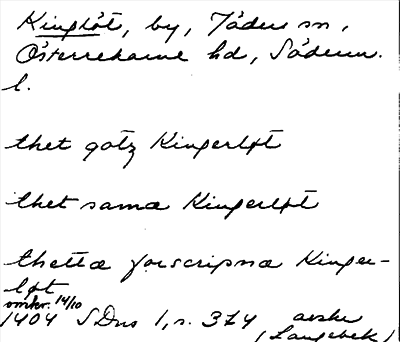 Kinglöt, by, Jäders sn,
Österrekarne hd, Söderm.
l.
thet gotz Kingerløt
thet sama Kingerløt
thetta forscripna Kinger-
løt
omkr. 14/10
1404 SDns 1, s. 374 avskr
(Langebek)